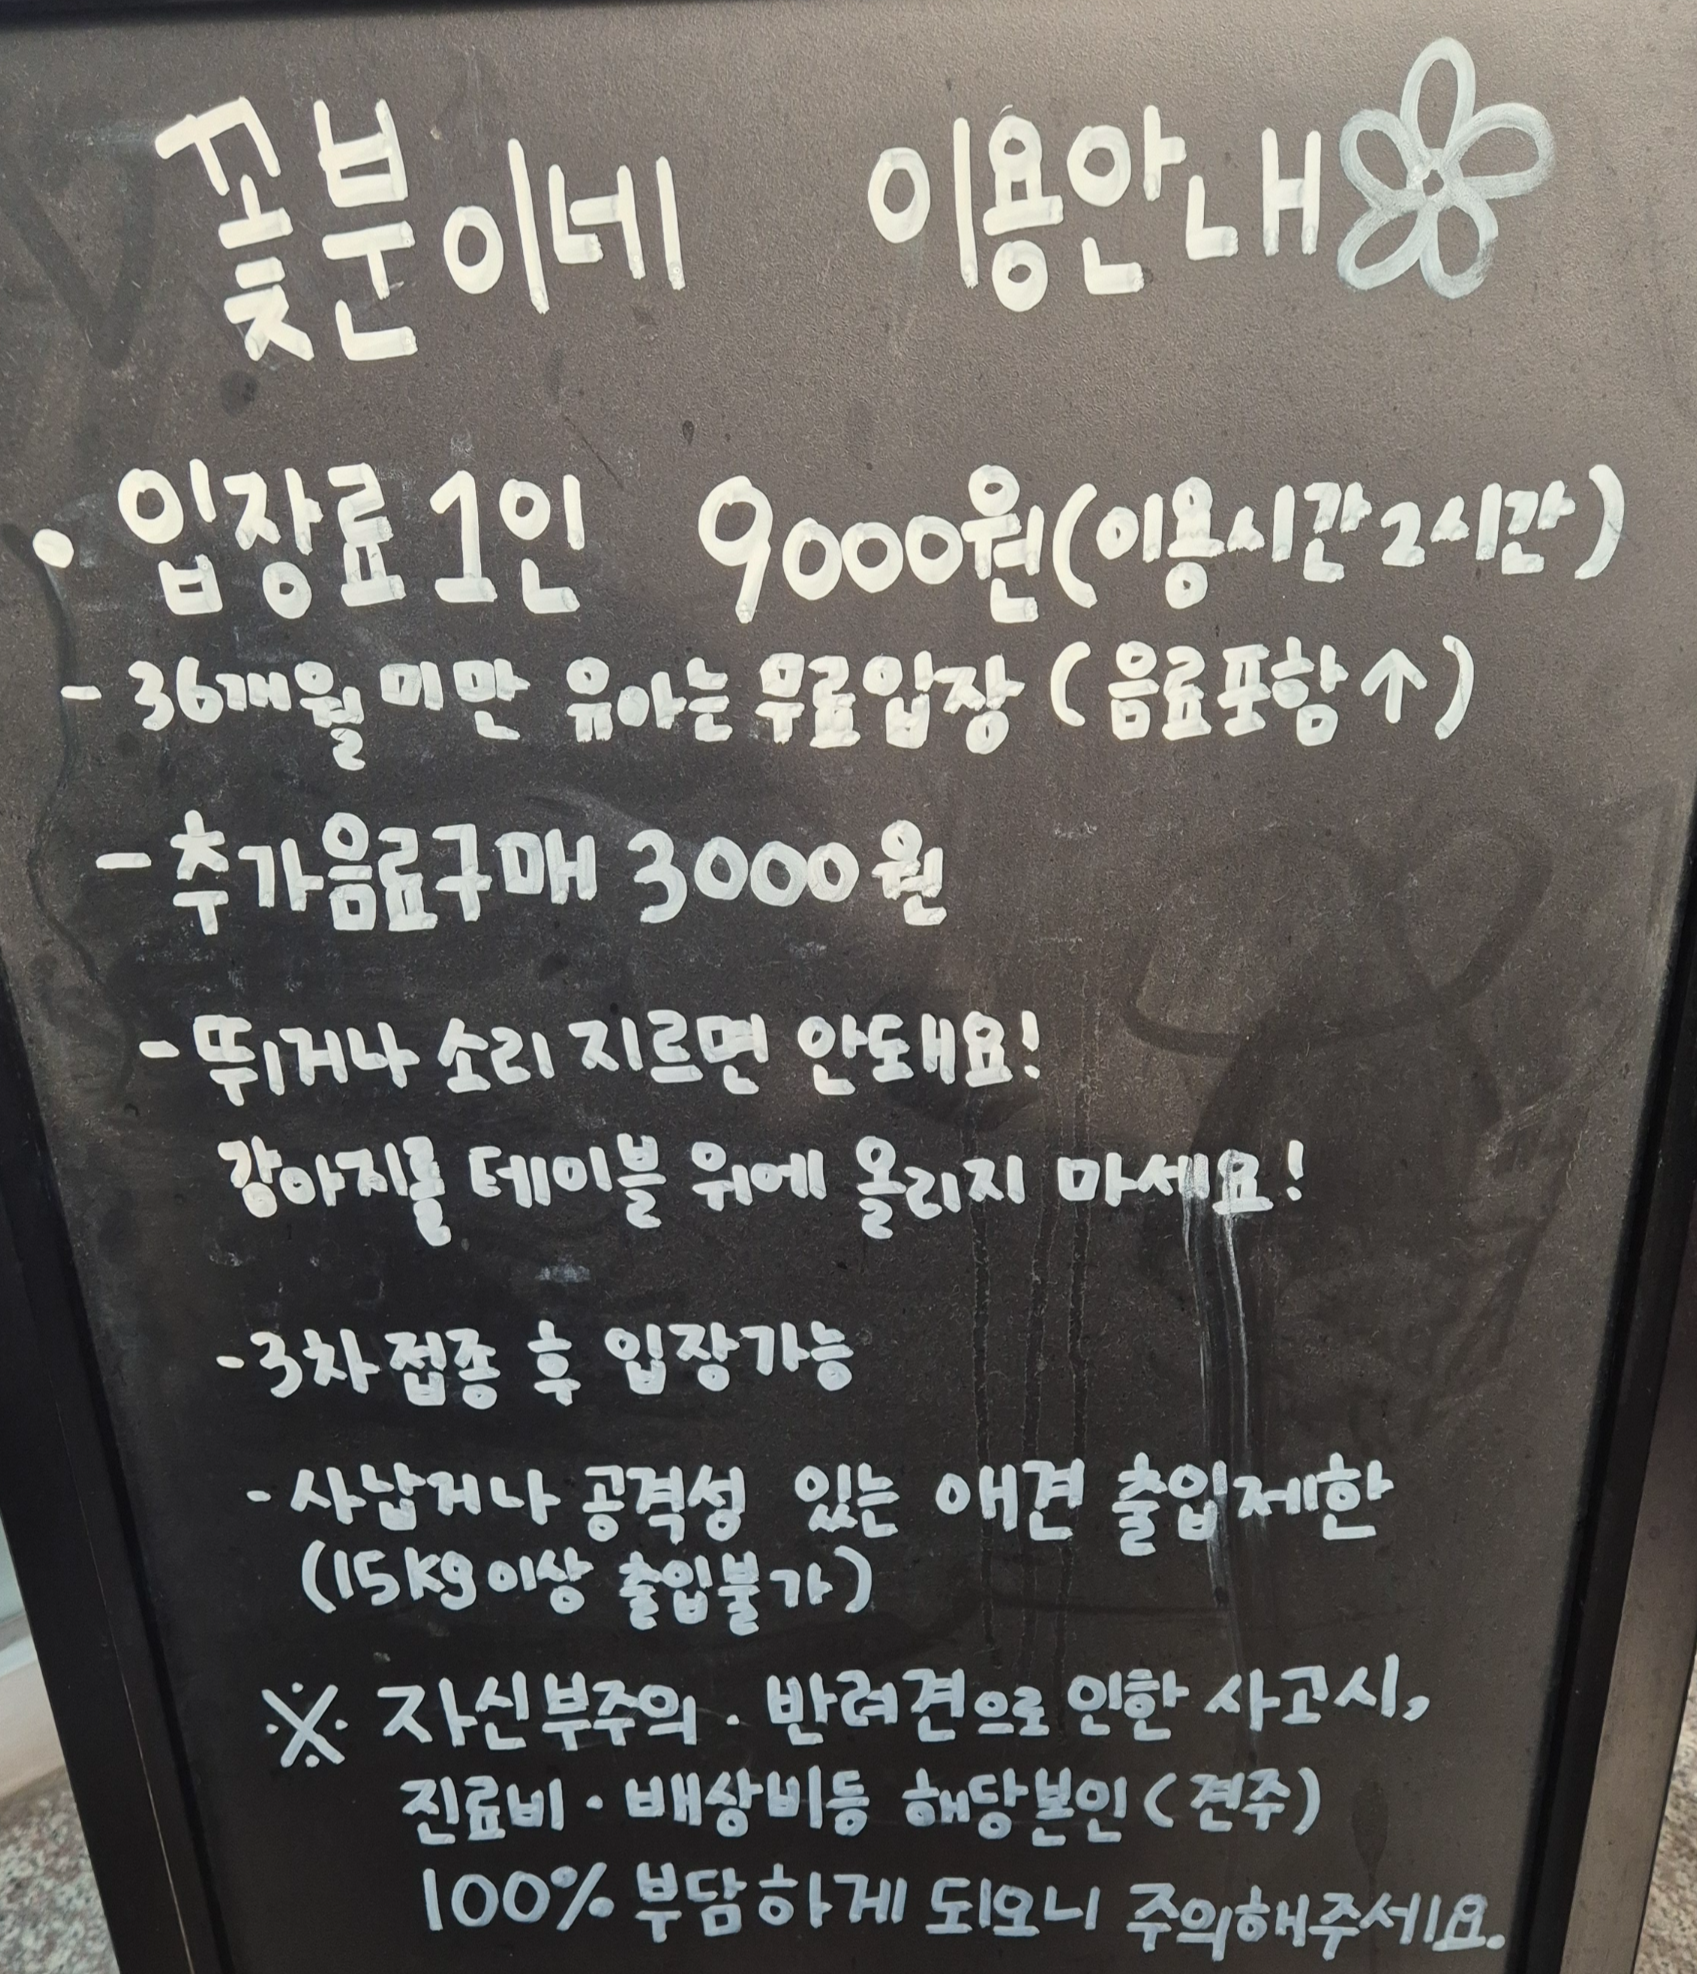 꽃분이네 이용안내
• 입장료 1인 9000원(이용시간 2시간)
- 36개월 미만 유아는 무료입장 (음료포함↑)
- 추가음료구매 3000원
- 뛰거나 소리 지르면 안돼요!
강아지를 테이블 위에 올리지 마세요!
- 3차접종 후 입장가능
- 사납거나 공격성 있는 애견 출입제한
(15kg이상 출입불가)
※ 자신부주의 · 반려견으로 인한 사고시,
진료비 · 배상비등 해당본인 (견주)
100% 부담하게 되오니 주의해주세요.